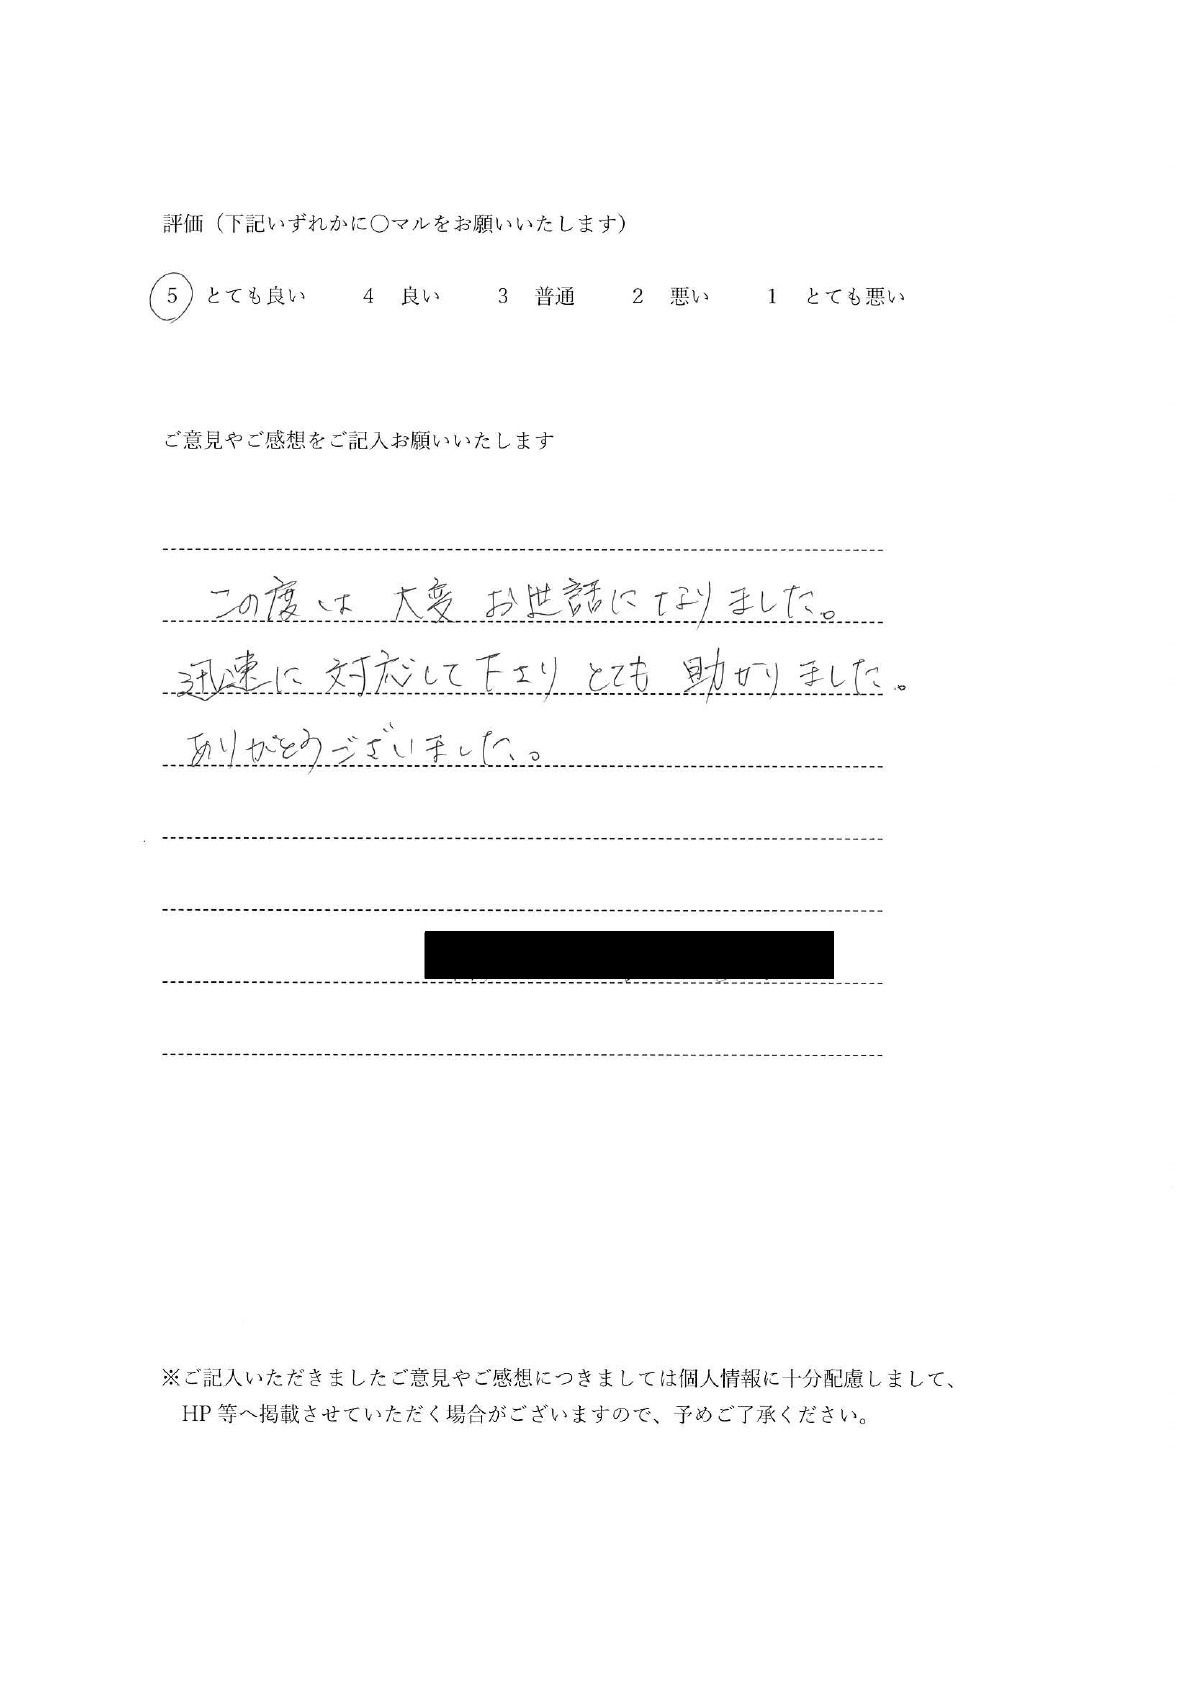 評価（下記いずれかに〇マルをお願いいたします）
5 とても良い 4 良い 3 普通 2 悪い 1 とても悪い
ご意見やご感想をご記入お願いいたします
この度は 大変 お世話になりました。
迅速に 対応して下さり とても 助かりました。
ありがとうございました。
※ご記入いただきましたご意見やご感想につきましては個人情報に十分配慮しまして、
HP 等へ掲載させていただく場合がございますので、予めご了承ください。